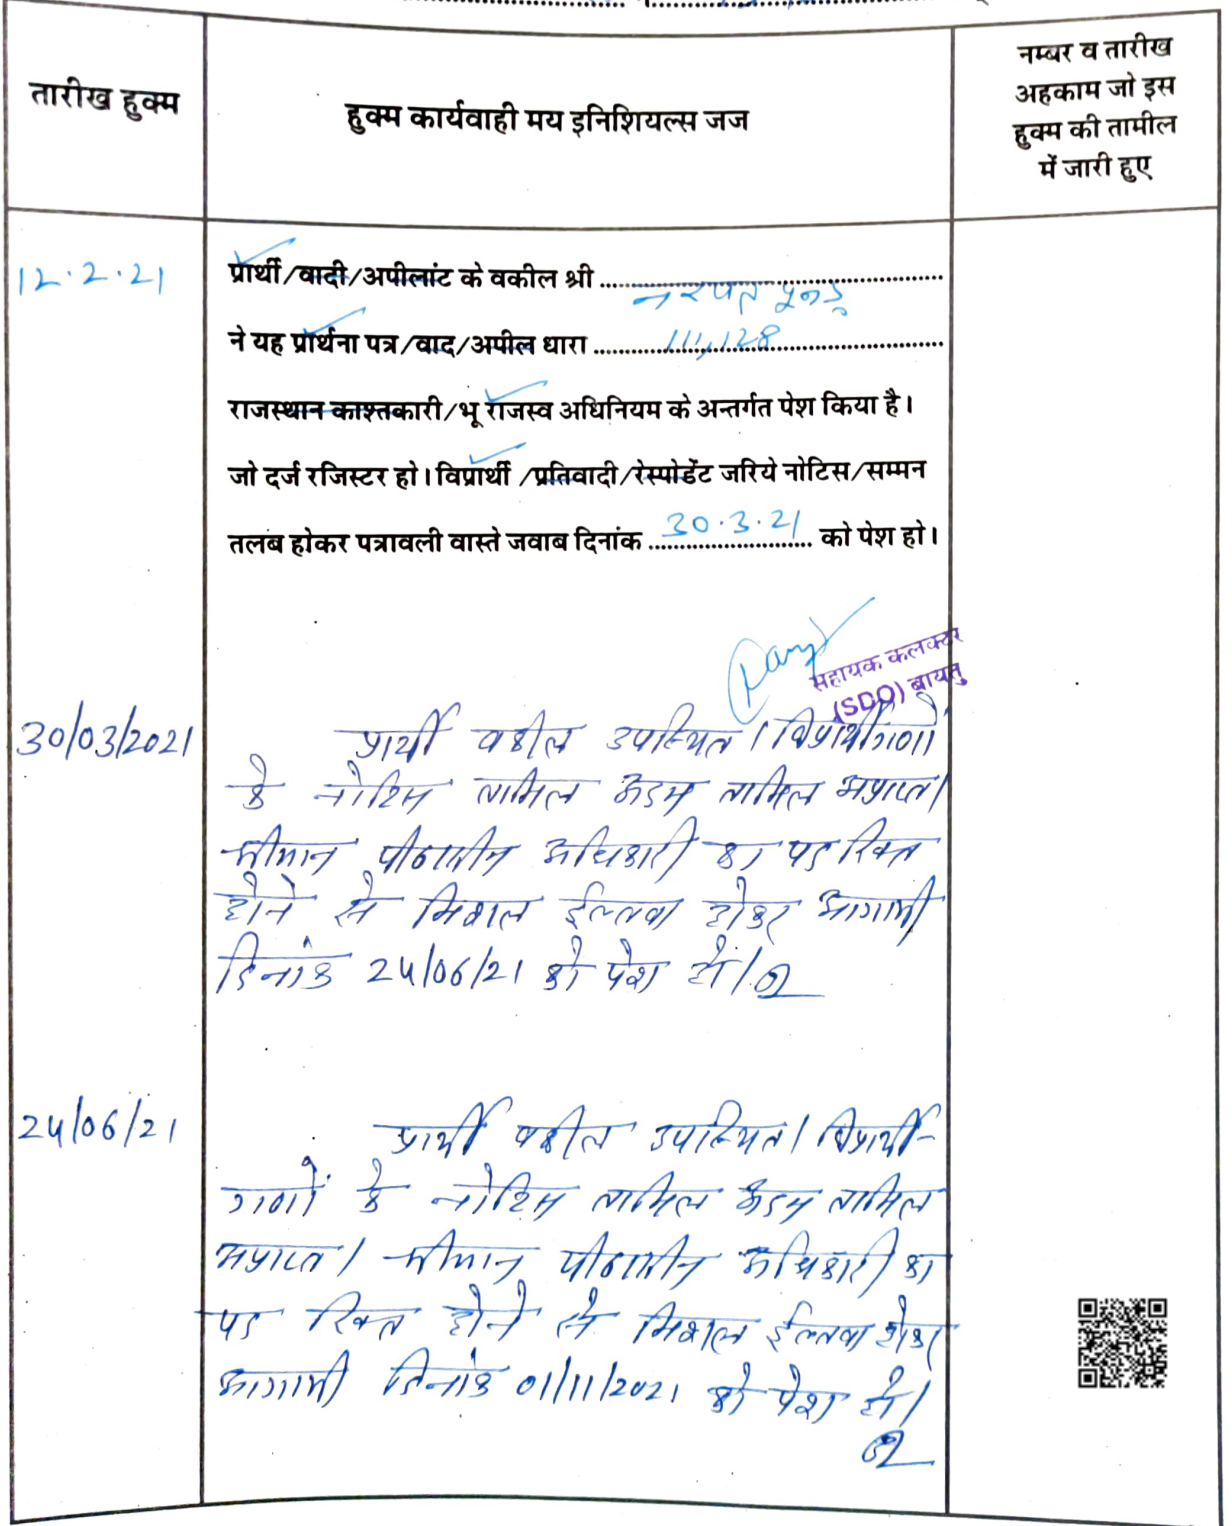 तारीख हुक्म
हुक्म कार्यवाही मय इनिशियल्स जज
नम्बर व तारीख
अहकाम जो इस
हुक्म की तामील
में जारी हुए
12.2.21
प्रार्थी/वादी/अपीलांट के वकील श्री नरपत
ने यह प्रार्थना पत्र/वाद/अपील धारा 111,128
राजस्थान काश्तकारी/भू राजस्व अधिनियम के अन्तर्गत पेश किया है।
जो दर्ज रजिस्टर हो। विप्रार्थी /प्रतिवादी/रेस्पोडेंट जरिये नोटिस/सम्मन
तलब होकर पत्रावली वास्ते जवाब दिनांक 30.3.21 को पेश हो।
सहायक कलक्टर
(SDO) बायतु
30/03/2021 प्रार्थी वकील उपस्थित। विप्रार्थीगणों
के नोटिस तामिल अदम तामिल अप्राप्त।
श्रीमान पीठासीन अधिकारी का पद रिक्त
होने से मिशल ईल्तवा होकर आगामी
दिनांक 24/06/21 को पेश हो।
24/06/21 प्रार्थी वकील उपस्थित। विप्रार्थी-
गणों के नोटिस तामिल अदम तामिल
अप्राप्त। श्रीमान पीठासीन अधिकारी का
पद रिक्त होने से मिशल ईल्तवा होकर
आगामी दिनांक 01/11/2021 को पेश हो।